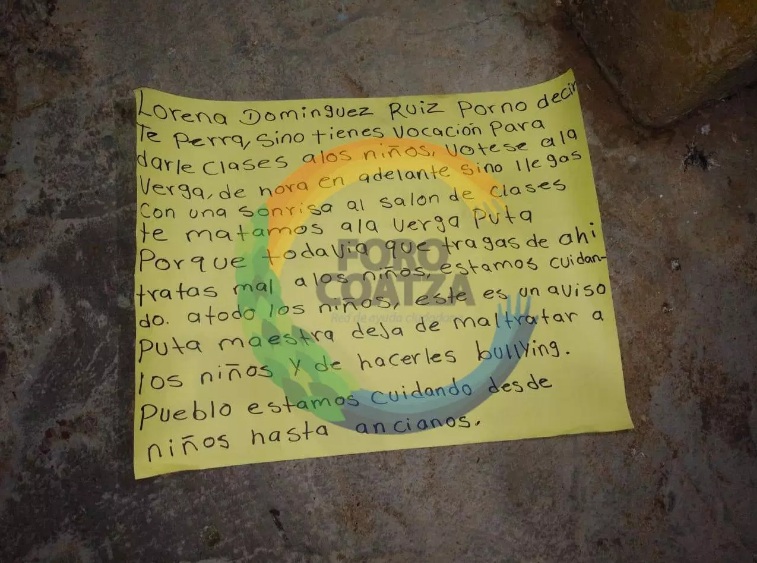 Lorena Dominguez Ruiz Porno decir
Te Perra, Sino tienes Vocación Para
darle Clases alos niños, Votese ala
Verga, de hora en adelante sino llegas
Con una sonrisa al salon de clases
te matamos ala verga Puta
Porque todavia que tragas de ahi
tratas mal a los niños, estamos cuidan-
do. atodo los niños, este es un aviso
Puta maestra deja de maltratar a
los niños y de hacerles bullying.
Pueblo estamos cuidando desde
niños hasta ancianos.
FORO
COATZA
Red de ayuda ciudadana